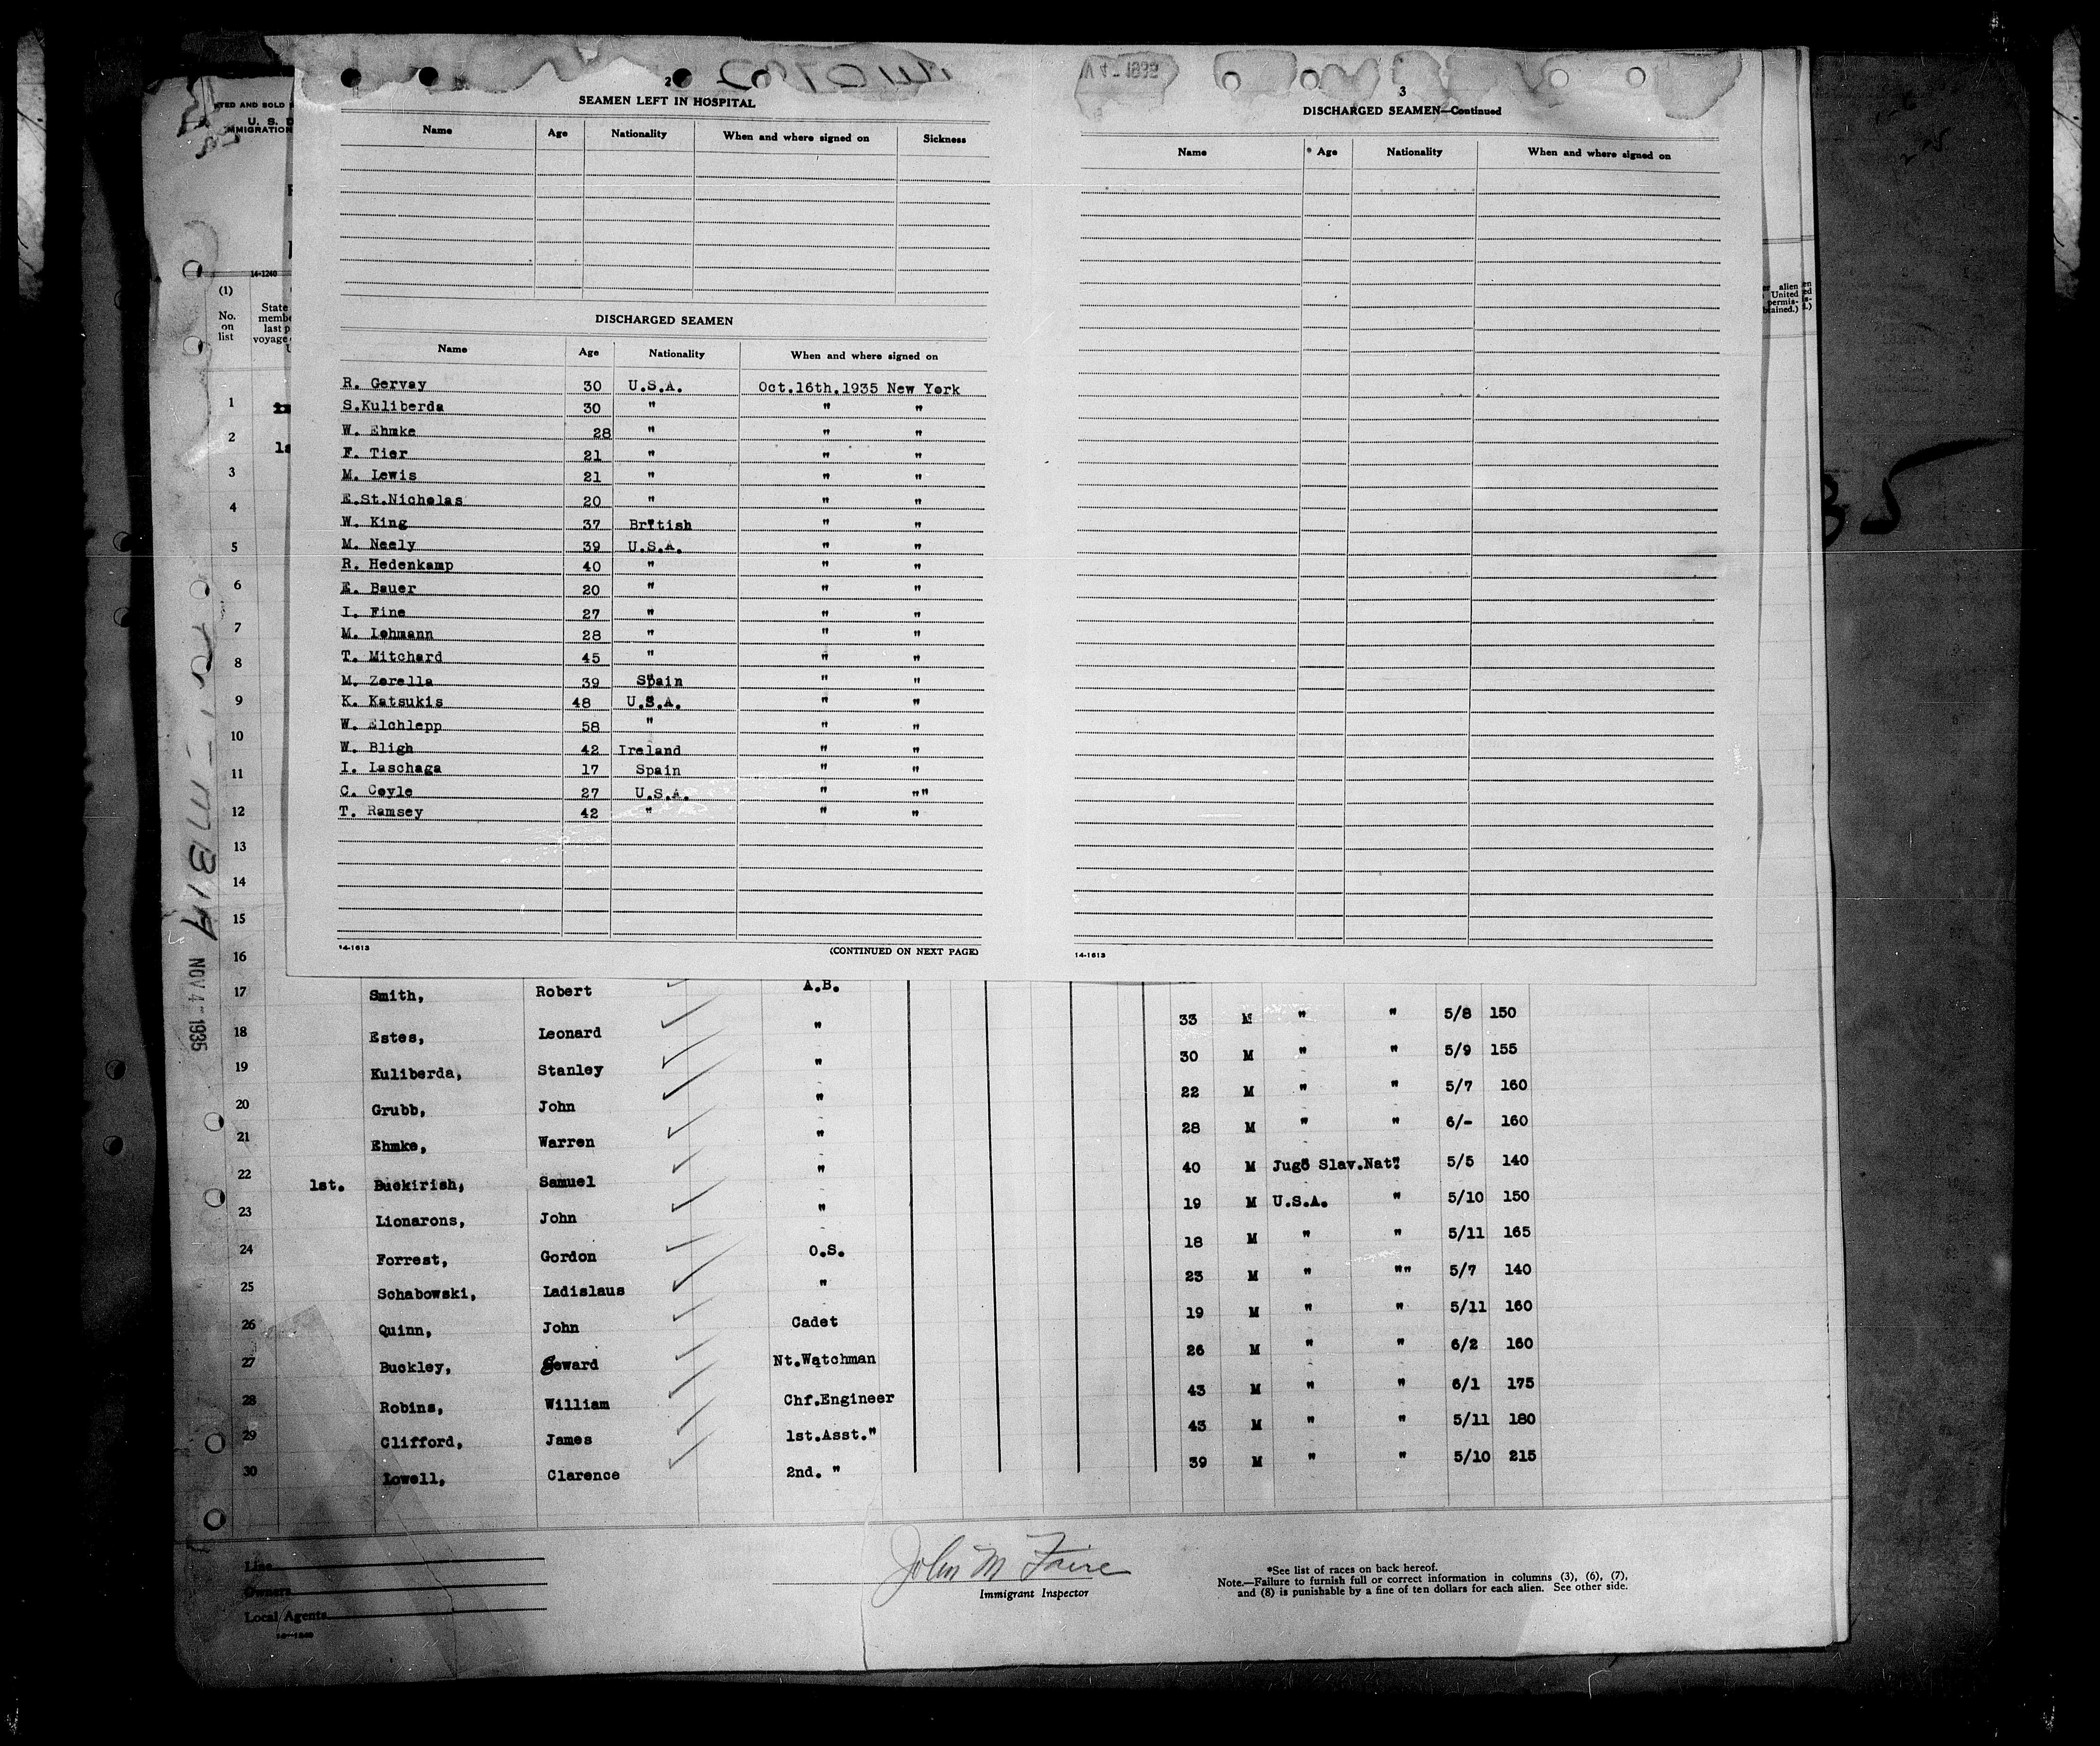 2
SEAMEN LEFT IN HOSPITAL
Name Age Nationality When and where signed on Sickness
DISCHARGED SEAMEN
Name Age Nationality When and where signed on
R. Gervay 30 U.S.A. Oct.16th.1935 New York
S.Kuliberda 30 " " "
W. Ehmke 28 " " "
F. Tier 21 " " "
M. Lewis 21 " " "
E.St.Nicholas 20 " " "
W. King 37 British " "
M. Neely 39 U.S.A. " "
R. Hedenkamp 40 " " "
E. Bauer 20 " " "
I. Fine 27 " " "
M. Lehmann 28 " " "
T. Mitchard 45 " " "
M. Zorella 39 Spain " "
K. Katsukis 48 U.S.A. " "
W. Elchlepp 58 " " "
W. Bligh 42 Ireland " "
I. Laschaga 17 Spain " "
C. Coyle 27 U.S.A. " ""
T. Ramsey 42 " " "
14-1613 (CONTINUED ON NEXT PAGE)
V 4 - 1935
3
DISCHARGED SEAMEN—Continued
Name Age Nationality When and where signed on
14-1613
TED AND SOLD
U. S. D
IMMIGRATION
14-1240
(1)
No. on list
State
membe
last p
voyage
1
2 1s
3
4
5
6
7
8
9
10
11
12
13
14
15
16
NOV 4 - 1935
er alien
United
permis-
btained.)
35
17 Smith, Robert A.B.
18 Estes, Leonard " 33 M " " 5/8 150
19 Kuliberda, Stanley " 30 M " " 5/9 155
20 Grubb, John " 22 M " " 5/7 160
21 Ehmke, Warren " 28 M " " 6/- 160
22 1st. Buckirish, Samuel " 40 M Jugo Slav.Nat. " 5/5 140
23 Lionarons, John " 19 M U.S.A. " 5/10 150
24 Forrest, Gordon O.S. 18 M " " 5/11 165
25 Schabowski, Ladislaus " 23 M " "" 5/7 140
26 Quinn, John Cadet 19 M " " 5/11 160
27 Buckley, Seward Nt.Watchman 26 M " " 6/2 160
28 Robins, William Chf.Engineer 43 M " " 6/1 175
29 Clifford, James 1st.Asst." 43 M " " 5/11 180
30 Lowell, Clarence 2nd. " 39 M " " 5/10 215
Line
Owners
Local Agents
14-1240
John M
Immigrant Inspector
*See list of races on back hereof.
Note.—Failure to furnish full or correct information in columns (3), (6), (7),
and (8) is punishable by a fine of ten dollars for each alien. See other side.